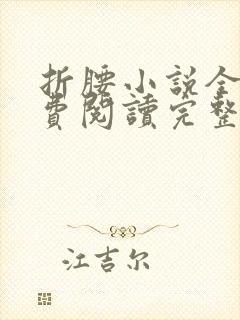 折腰小説全
費閱讀完整
江吉尔